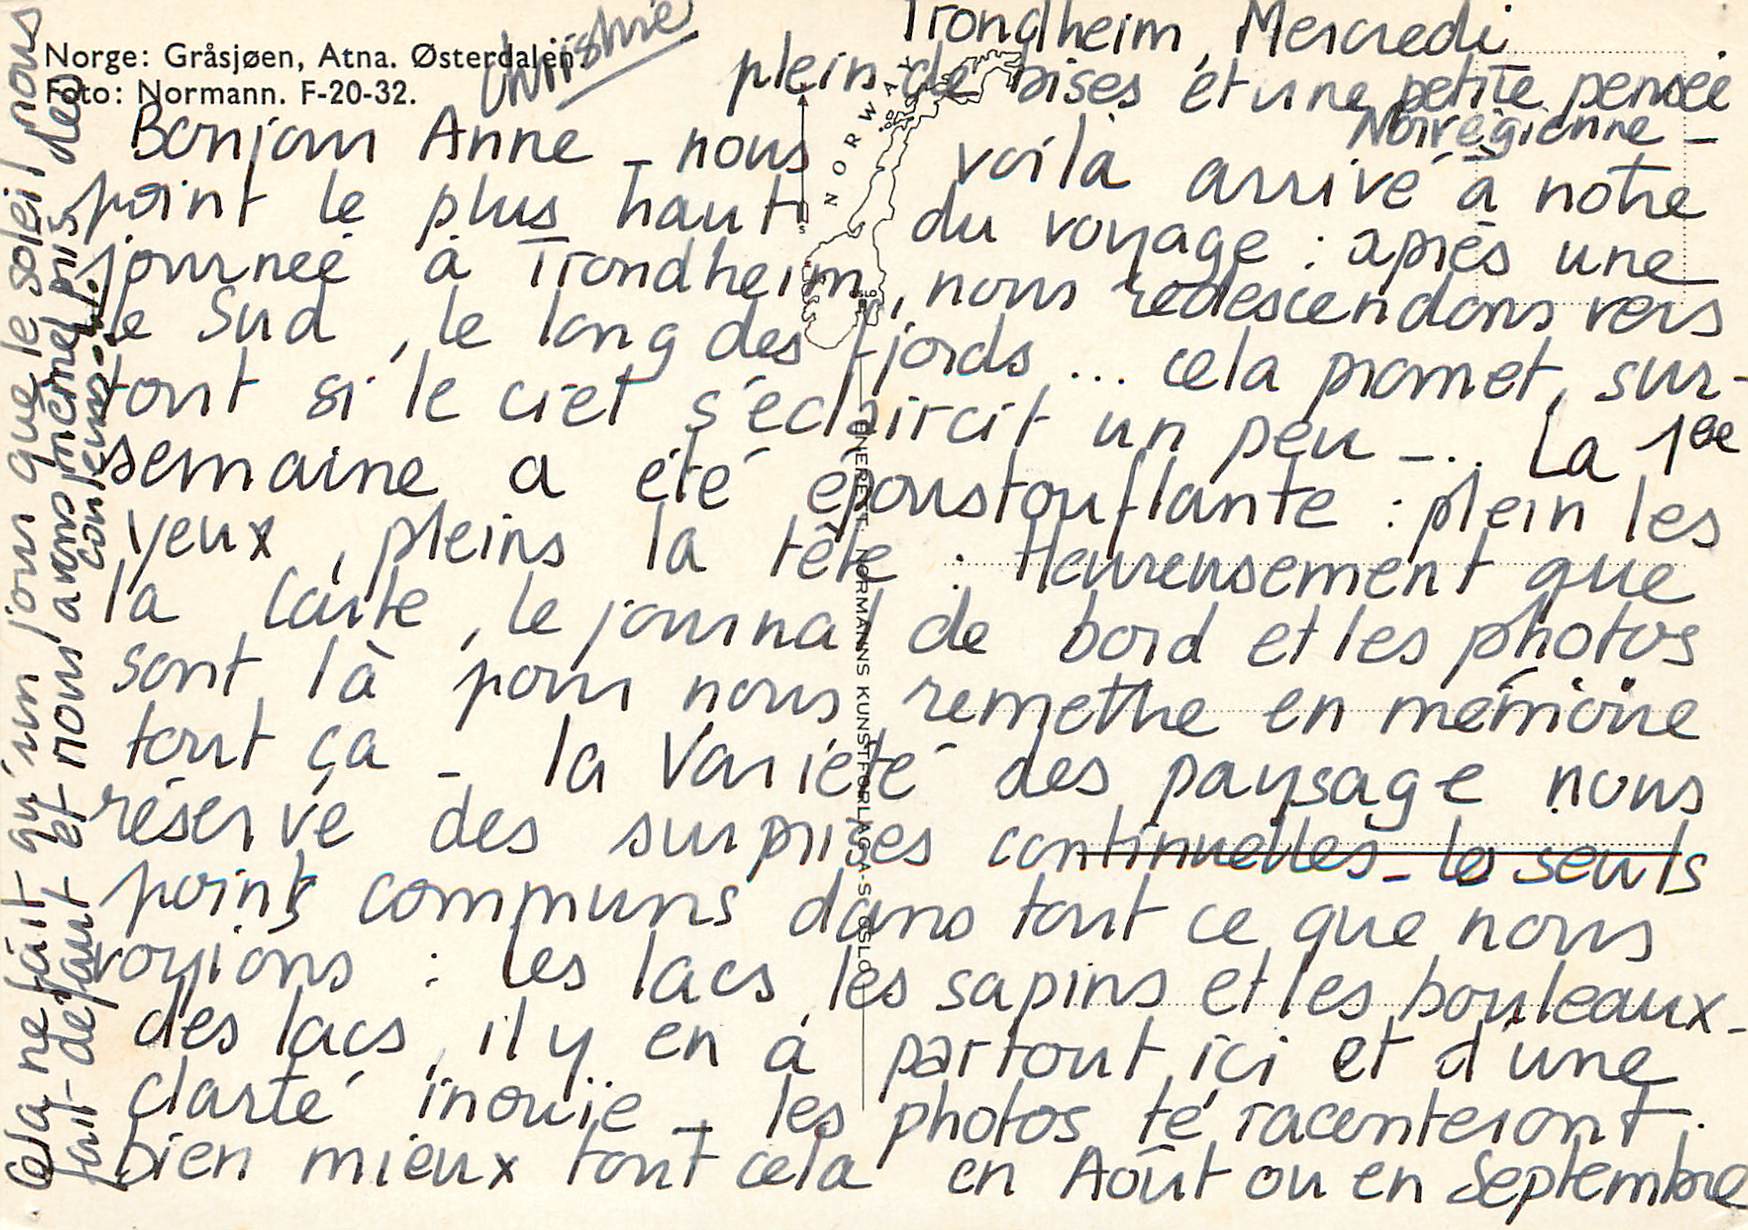 Norge: Gråsjøen, Atna. Østerdalen.
Foto: Normann. F-20-32.
NORWAY
ENERETT: NORMANNS KUNSTFORLAG A-S, OSLO
Trondheim, Mercredi
Bonjour Anne - nous voilà arrivé à notre
point le plus haut du voyage : après une
journée à Trondheim, nous redescendons vers
le Sud, le long des fjords... cela promet, sur-
tout si le ciel s'éclaircit un peu -.. La 1ee
semaine a été époustouflante : plein les
yeux, pleins la tête : Heureusement que
la carte, le journal de bord et les photos
sont là pour nous remettre en mémoire
tout ça - la variété des paysage nous
réserve des surprises continuelles - les seuls
points communs dans tout ce que nous
voyions : les lacs, les sapins et les bouleaux -
des lacs, il y en a partout ici et d'une
clarté inouïe - les photos te raconteront
bien mieux tout cela en Août ou en Septembre
Cela ne fait qu'un jour que le soleil nous
fait défaut et nous avons même pris des
couleurs.
plein de bises et une petite pensée
Norvégienne -
Christine